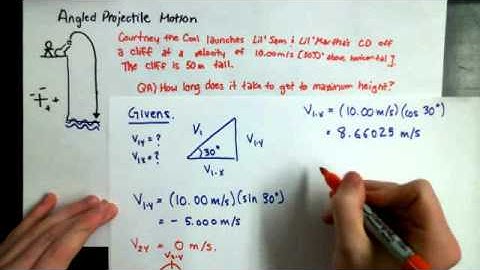 Angled Projectile Motion
Courtney the Cool launches Lil' Sam & Lil' Martha's CD off
a cliff at a velocity of 10.00 m/s [30.0° above horizontal].
The cliff is 50m tall.
QA) How long does it take to get to maximum height?
Givens.
V1y = ?
V1x = ?
V1
30°
V1-y
V1-x
V1-x = (10.00 m/s)(cos 30°)
= 8.66025 m/s
V1-y = (10.00 m/s)(sin 30°)
= - 5.000 m/s
V2y = 0 m/s.
V2-y